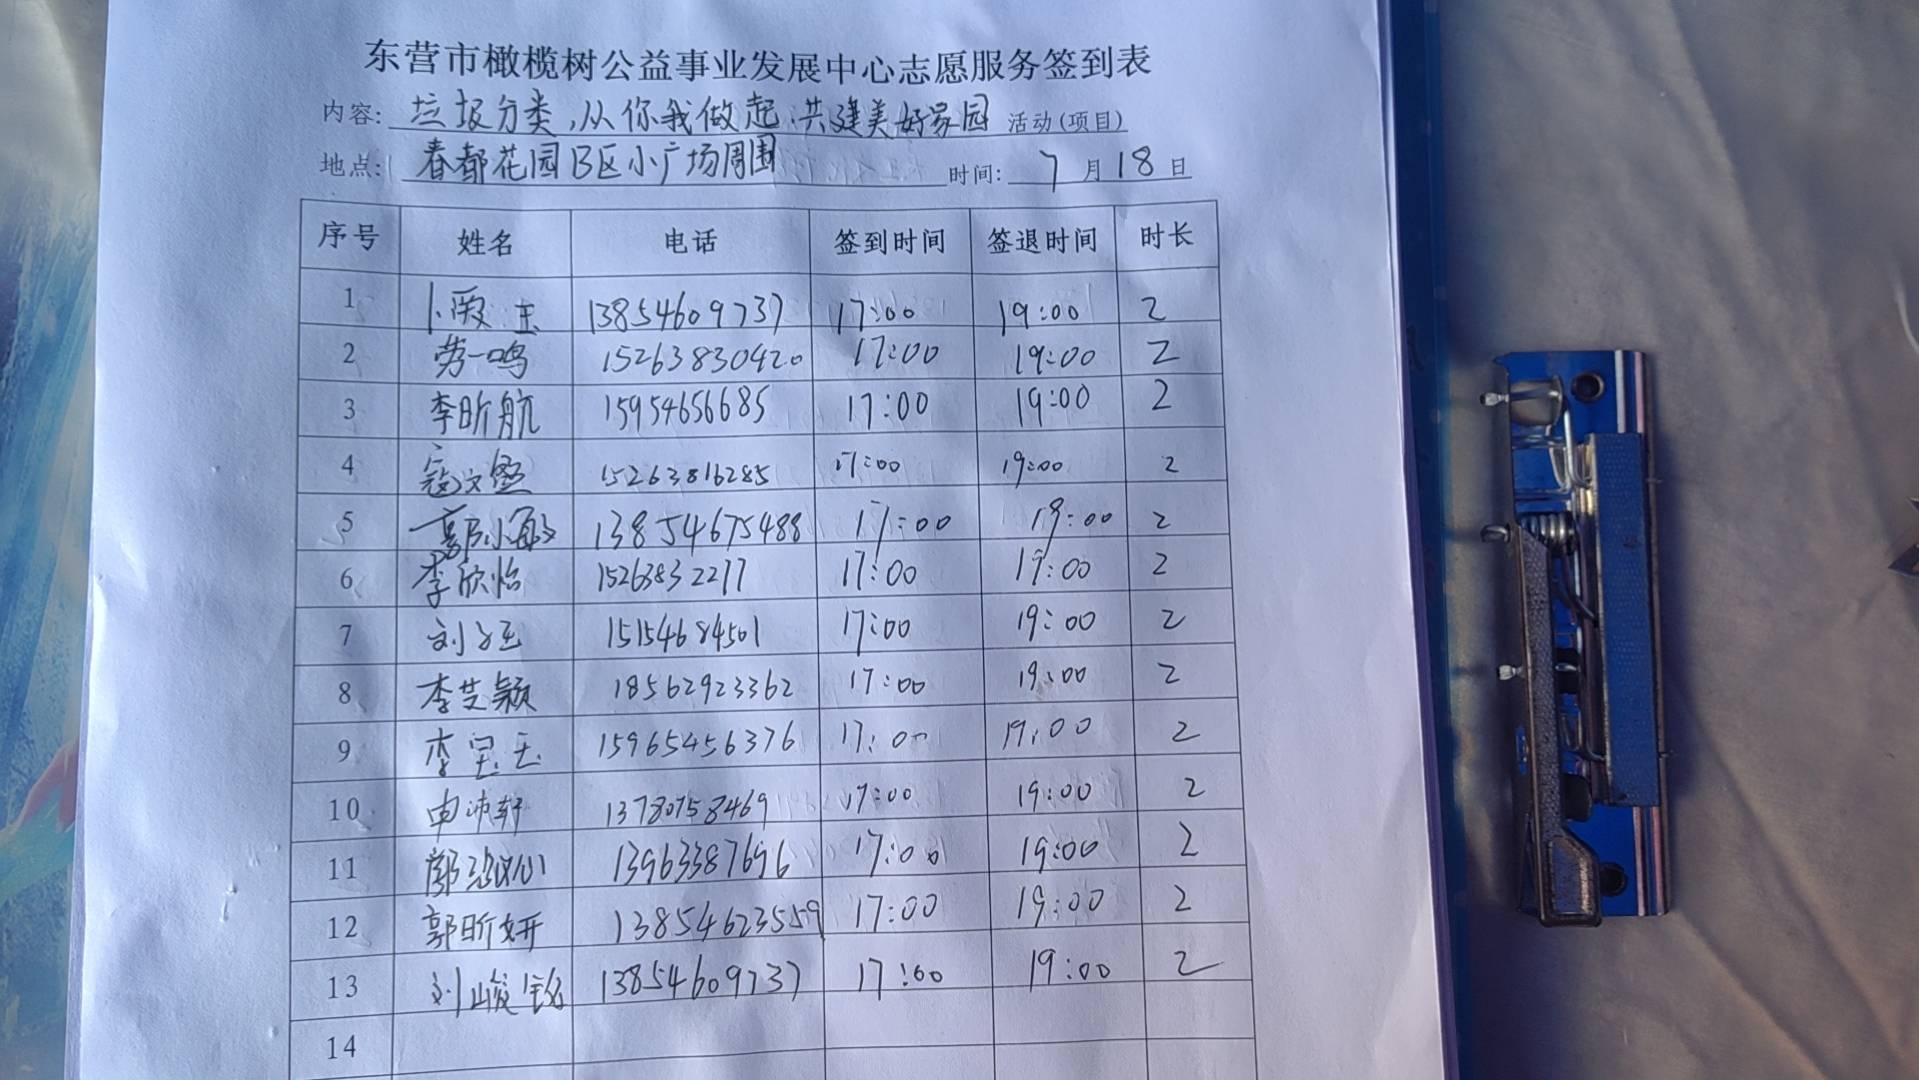 东营市橄榄树公益事业发展中心志愿服务签到表
内容: 垃圾分类,从你我做起,共建美好家园 活动(项目)
地点: 春都花园B区小广场周围 时间: 7月18日
序号 姓名 电话 签到时间 签退时间 时长
1 13854609737 17:00 19:00 2
2 劳一鸣 15263830420 17:00 19:00 2
3 李昕航 15954656685 17:00 19:00 2
4 寇文 15263816285 17:00 19:00 2
5 郭小敏 13854675488 17:00 19:00 2
6 李欣怡 15263832217 17:00 19:00 2
7 刘 15154684501 17:00 19:00 2
8 李芝颖 18562923362 17:00 19:00 2
9 李 玉 15965456376 17:00 19:00 2
10 申沛轩 13780758469 17:00 19:00 2
11 13963387696 17:00 19:00 2
12 郭昕妍 13854623559 17:00 19:00 2
13 刘峻铭 13854609737 17:00 19:00 2
14